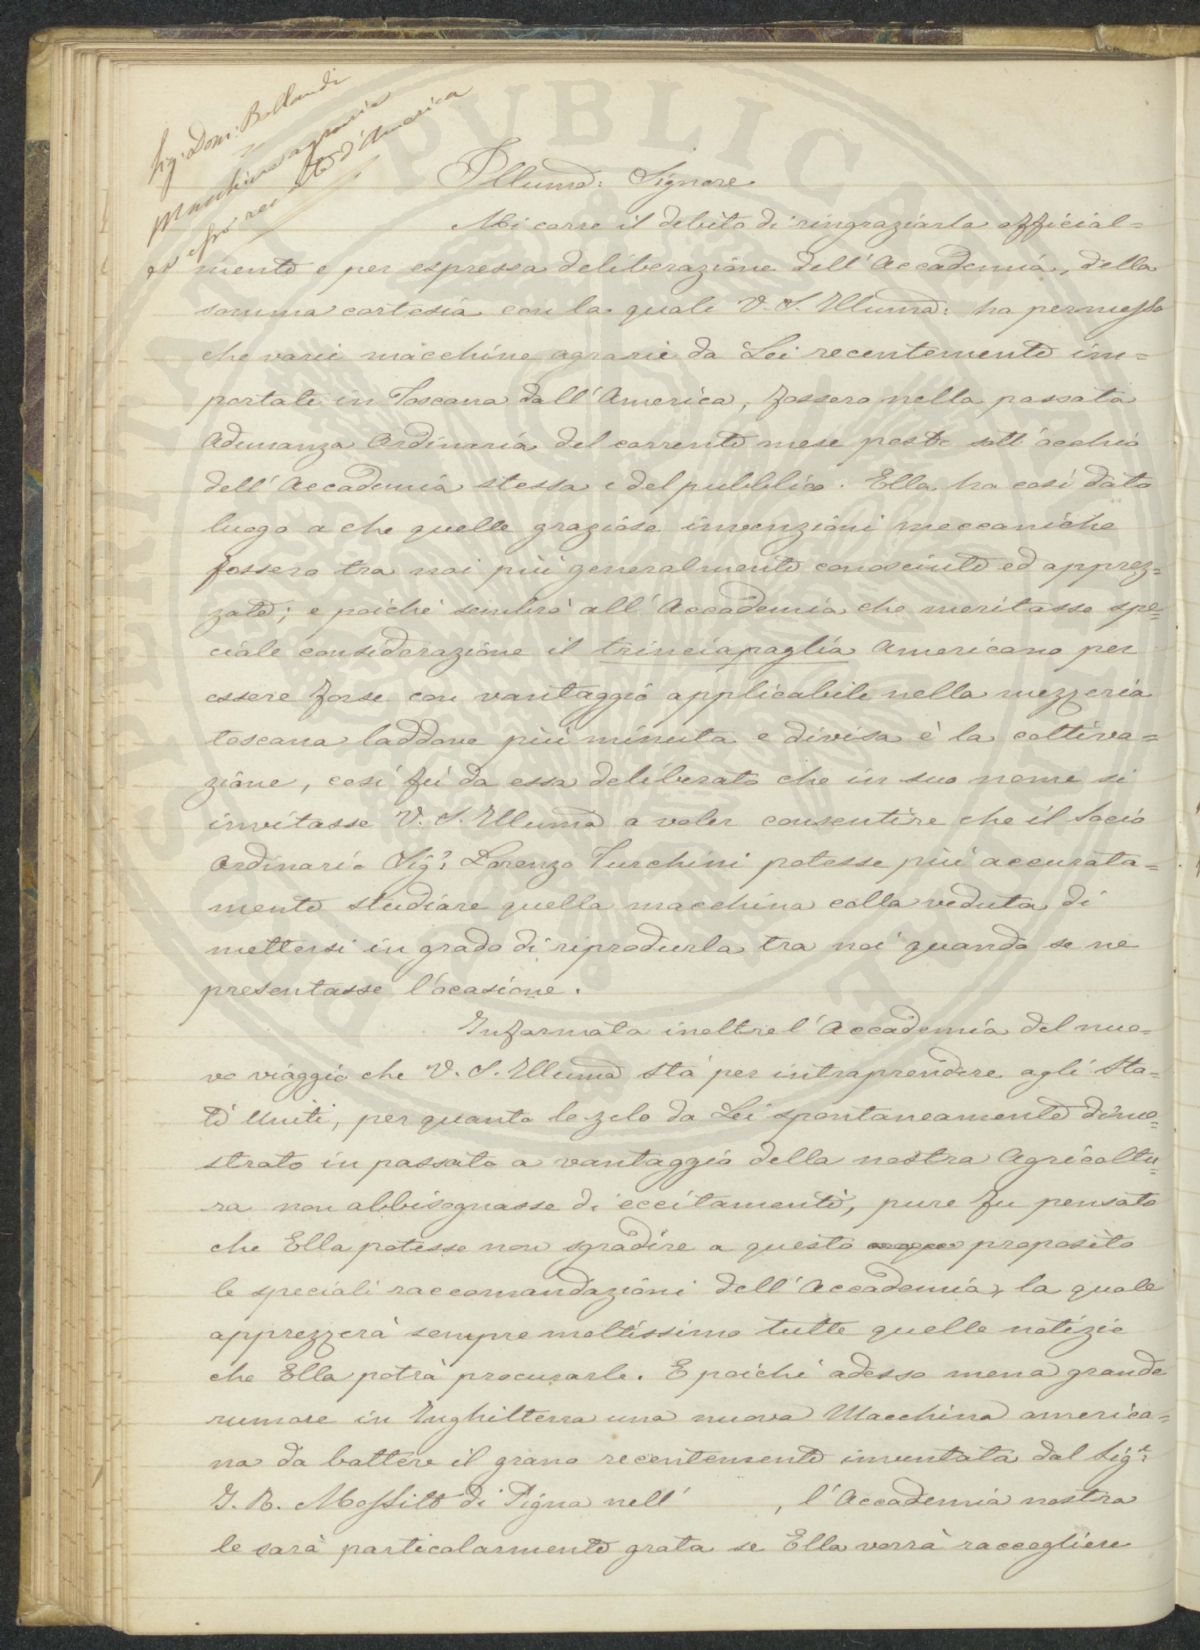 Sig. Dom: Bollandi
Macchine agrarie
da esso recate d'America
Illumo: Signore
Mi corre il debito di ringraziarla official=
mente e per espressa deliberazione dell'Accademia, della
somma cortesia con la quale V. S. Illumo: ha permesso
che varie macchine agrarie da Lei recentemente im=
portate in Toscana dall'America, fossero nella passata
Adunanza Ordinaria del corrente mese poste sott'occhio
dell'Accademia stessa e del pubblico. Ella ha così dato
luogo a che quelle graziose invenzioni meccaniche
fossero tra noi più generalmente conosciute ed apprez=
zate; e poiché sembrò all'Accademia che meritasse spe=
ciale considerazione il trinciapaglia Americano per
essere forse con vantaggio applicabile nella mezzeria
toscana laddove più minuta e divisa è la coltiva=
zione, così fù da essa deliberato che in suo nome si
invitasse V. S. Illumo a voler consentire che il Socio
Ordinario Sigr: Lorenzo Turchini potesse più accurata=
mente studiare quella macchina colla veduta di
mettersi in grado di riprodurla tra noi quando se ne
presentasse l'ocasione.
Informata inoltre l'Accademia del nuo=
vo viaggio che V. S. Illumo stà per intraprendere agli Sta=
ti Uniti, per quanto lo zelo da Lei spontaneamente dimo=
strato in passato a vantaggio della nostra Agricoltu=
ra non abbisognasse di eccitamento, pure fu pensato
che Ella potesse non sgradire a questo proposito
le speciali raccomandazioni dell'Accademia, la quale
apprezzerà sempre moltissimo tutte quelle notizie
che Ella potrà procurarle. E poiché adesso mena grande
rumore in Inghilterra una nuova Macchina america=
na da battere il grano recentemente inventata dal Sigr:
J. R. Moffitt di Piqna nell' , l'Accademia nostra
le sarà particolarmente grata se Ella vorrà raccogliere